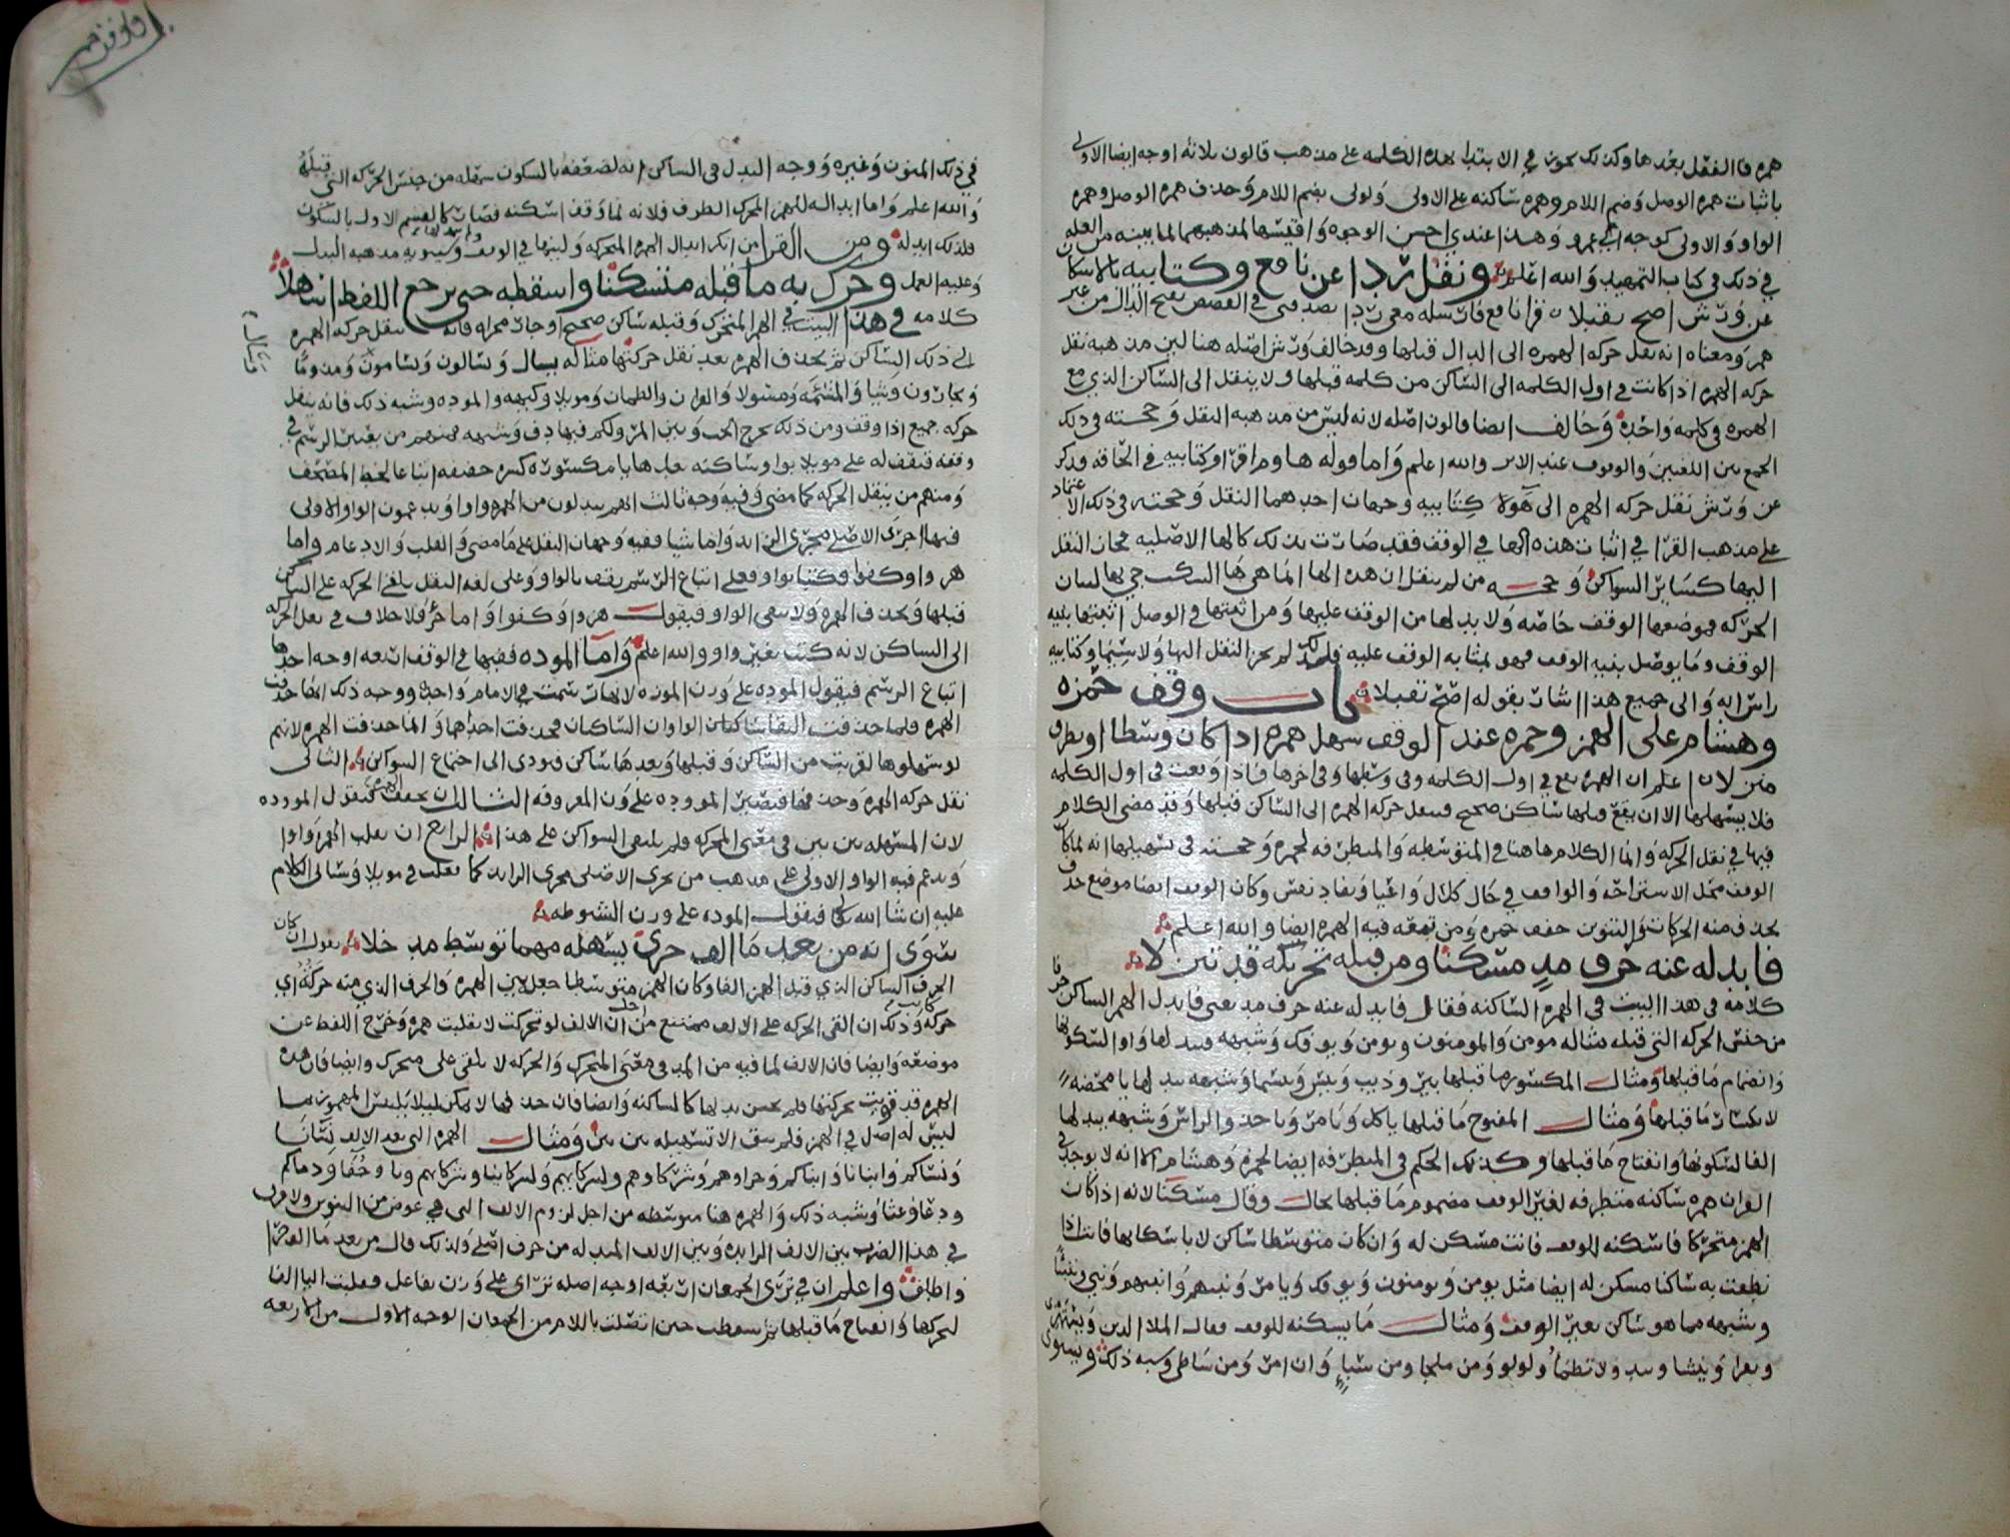 همزه فا الفعل بعدها وكذلك يجوز في الابتدا بهذه الكلمه على مذهب قالون ثلاثه اوجه ايضا الاولى
باثبات همزه الوصل وضم اللام وهمزه ساكنه على الاولى ولولى بضم اللام وحذف همزه الوصل وهمزه
الواو والاولى كوجه ابي عمرو وهذا عندي احسن الوجوه واقيسها لمذهبهما لما بينته من العله
في ذلك في كتاب التمهيد والله اعلم ونقل ردا عن نافع وكتابيه بالاسكان
عن ورش اصح تقبلا قرا نافع فارسله معي ردا يصدقني في القصص بفتح الدال من غير
همز ومعناه انه نقل حركه الهمزه الى الدال قبلها وقد خالف ورش اصله هنا لين مذهبه نقل
حركه الهمز اذا كانت في اول الكلمه الى الساكن من كلمه قبلها ولا ينقل الى الساكن الذي مع
الهمزه في كلمه واحده وخالف ايضا قالون اصله لانه ليس من مذهبه النقل وحجته في ذلك
الجمع بين اللغتين والوقوف عند الاثر والله اعلم واما قوله هاوم اقروا كتابيه في الحاقه فذكر
عن ورش نقل حركه الهمزه الى هآولا كتابيه وجهان احدهما النقل وحجته في ذلك الاعتماد
على مذهب القرا في اثبات هذه الها في الوقف فقد صارت بذلك كالها الاصليه فجاز النقل
اليها كساير السواكن وحجته من لم ينقل ان هذه الها انما هي ها السكت جي بها لبيان
الحركه فموضعها الوقف خاصه ولا بد لها من الوقف عليها ومن اثبتها في الوصل اثبتها بنيه
الوقف وما يوصل بنيه الوقف فهو بمثابه الوقف عليه فلذلك لم يجز النقل اليها ولا سيما وكتابيه
راس ايه والى جميع هذا اشار بقوله اصح تقبلا باب وقف حمزه
وهشام على الهمز وحمزه عند الوقف سهل همزه اذا كان وسطا او تطرف
منزلا اعلم ان الهمزه تقع في اول الكلمه وفي وسطها وفي اخرها فاذا وقعت في اول الكلمه
فلا يسهلها الا ان يقع قبلها ساكن صحيح فينقل حركه الهمزه الى الساكن قبلها وقد مضى الكلام
فيها في نقل الحركه وانما الكلام هاهنا في المتوسطه والمتطرفه لحمزه وحجته في تسهيلها انه لما كان
الوقف محل الاستراحه والواقف في حال كلال واعيا ونفاد نفس وكان الوقف ايضا موضع حذف
يحذف منه الحركات والتنوين خفف حمزه ومن تبعه فيه الهمزه ايضا والله اعلم
فابدله عنه حرف مد مسكنا ومن قبله تحريكه قد تنزلا
كلامه في هذا البيت في الهمزه الساكنه فقال فابدله عنه حرف مد يعني فابدل الهمز الساكن حرفا
من جنس الحركه التي قبله مثاله مومن والمومنون ويومن ويوفك وشبهه فيبدلها واوا لسكونها
وانضمام ما قبلها ومثال المكسور ما قبلها بير وذيب وبيس وبيسما وشبهه يبدلها يا محضه
لانكسار ما قبلها ومثال المفتوح ما قبلها ياكل ويامر وياخذ والراس وشبهه يبدلها
الفا لسكونها وانفتاح ما قبلها وكذلك الحكم في المتطرفه ايضا لحمزه وهشام الا انه لا يوجد في
القران همزه ساكنه متطرفه لغير الوقف مضموم ما قبلها بحال وقال مسكنا لانه اذا كان
الهمز متحركا فاسكنه للوقف فانت مسكن له وان كان متوسطا ساكن لا باسكانها فانت اذا
نطقت به ساكنا مسكن له ايضا مثل يومن ويومنون ويوفك ويامر ونبيهم وانبيهم ونبي ونبينا
وشبهه مما هو ساكن لغير الوقف ومثال ما يسكنه للوقف فقال الملا الذين ويستهزي
ويقرا وينشا ولا تظمأ ولولو ومن ملجا ومن سبإ وان امر ومن شاطي وشبه ذلك ويستوي
في ذلك المنون وغيره ووجه البدل في الساكن انه لضعفه بالسكون سهله من جنس الحركه التي قبله
والله اعلم واما ابداله للهمز المتحرك الطرف فلانه لما وقف اسكنه فصار كالقسم الاول بالسكون
فلذلك ابدله ومن القرا من انكر ابدال الهمزه المتحركه ولينها في الوقف وسيبويه مذهبه البدل
وعليه العمل وحرك به ما قبله متسكنا واسقطه حتى يرجع اللفظ اسهلا
كلامه في هذا البيت في الهمز المتحرك وقبله ساكن صحيح او جار مجراه فانه ينقل حركه الهمزه
الى ذلك الساكن ثم يحذف الهمزه بعد نقل حركتها مثاله يسال ويسالون ويسامون ومذوما
ويجارون وشيا والمشئمه ومسولا والقران والظمان وموئلا وكهيه والموده وشبه ذلك فانه ينقل
حركه جميع اذا وقف ومن ذلك يخرج الخب وبين المرو لكم فيها دف وشبهه فمنهم من يعتبر الرسم في
وقفه فيقف له على مويلا بواو ساكنه بعدها يا مكسوره كسره خفيفه اتباعا لخط المصحف
ومنهم من ينقل الحركه كما مضى وفيه وجه ثالث انهم يبدلون من الهمزه واوا ويدغمون الواو الاولى
فيها اجرى الاصلي مجرى الزايد واما شيا ففيه وجهان النقل على ما مضى والقلب والادغام واما
هزوا وكفوا وكتبا بواو فعلى اتباع الرسم يقف بالواو وعلى لغه النقل يلقى الحركه على الساكن
قبلها ويحذف الهمزه ولا يبقي الواو فيقول هزوا وكفوا واما جز فلا خلاف في نقل الحركه
الى الساكن لانه كتب بغير واو والله اعلم واما الموده ففيها في الوقف اربعه اوجه احدها
اتباع الرسم فيقول الموده على وزن الموزه لانها رسمت في الامام واحده ووجه ذلك انها حذفت
الهمزه فلما حذفت التقا ساكنان الواوان الساكنان فحذفت احداهما وانما حذفت الهمزه لانهم
لو سهلوها لقربت من الساكن وقبلها وبعدها ساكن فيودي الى اجتماع السواكن الثاني
نقل حركه الهمزه وحذفها فيصير المووده على وزن المعروفه الثالث ان يخفف الهمزه فيقول الموودة
لان المسهله بين بين في معنى المتحركه فلم يلتقي السواكن على هذا الرابع ان تقلب الهمز واوا
ويدغم فيه الواو الاولى على مذهب من يجري الاصلي مجرى الزايد كما تقلب في مويلا وسياتي الكلام
عليه ان شا الله تعالى فيقول الموده على وزن الشبوطه
سوى انه من بعد ما الف جرى يسهله مهما توسط مدخلا يقول ان كان
الحرف الساكن الذي قبل الهمز الفا وكان الهمز متوسطا جعل بين الهمزه والحرف الذي منه حركتها اي
حركه كانت وذلك ان القى الحركه على الالف ممتنع من اجل ان الالف لو تحركت لانقلبت همزه وخرج اللفظ عن
موضعه وايضا فان الالف لما فيه من المد في معنى المتحرك والحركه لا تلقى على متحرك وايضا فان هذه
الهمزه قد قويت بحركتها فلم يحسن بدلها كالساكنه وايضا فان حذفها لا يمكن ليلا يلبس المهموز بما
ليس له اصل في الهمز فلم يبق الا تسهيله بين بين ومثال الهمزه التي بعد الالف نسانا
ونساكم وابنانا وابناكم وجزاوهم وشركاوهم ولشركايهم ولشركاينا وشركايهم وما وجفا ودماكم
ودعا وغثا وشبه ذلك والهمزه هنا متوسطه من اجل لزوم الالف التي هي عوض من التنوين ولا فرق
في هذا الضرب بين الالف الزايده وبين الالف المبدله من حرف اصلي ولذلك قال من بعد ما الف جرى
واطلق واعلم ان في ترى الجمعان اربعه اوجه اصله تراي على وزن تفاعل فقلبت اليا الفا
لتحركها وانفتاح ما قبلها ثم سقطت حين اتصلت باللام من الجمعان الوجه الاول من الاربعه